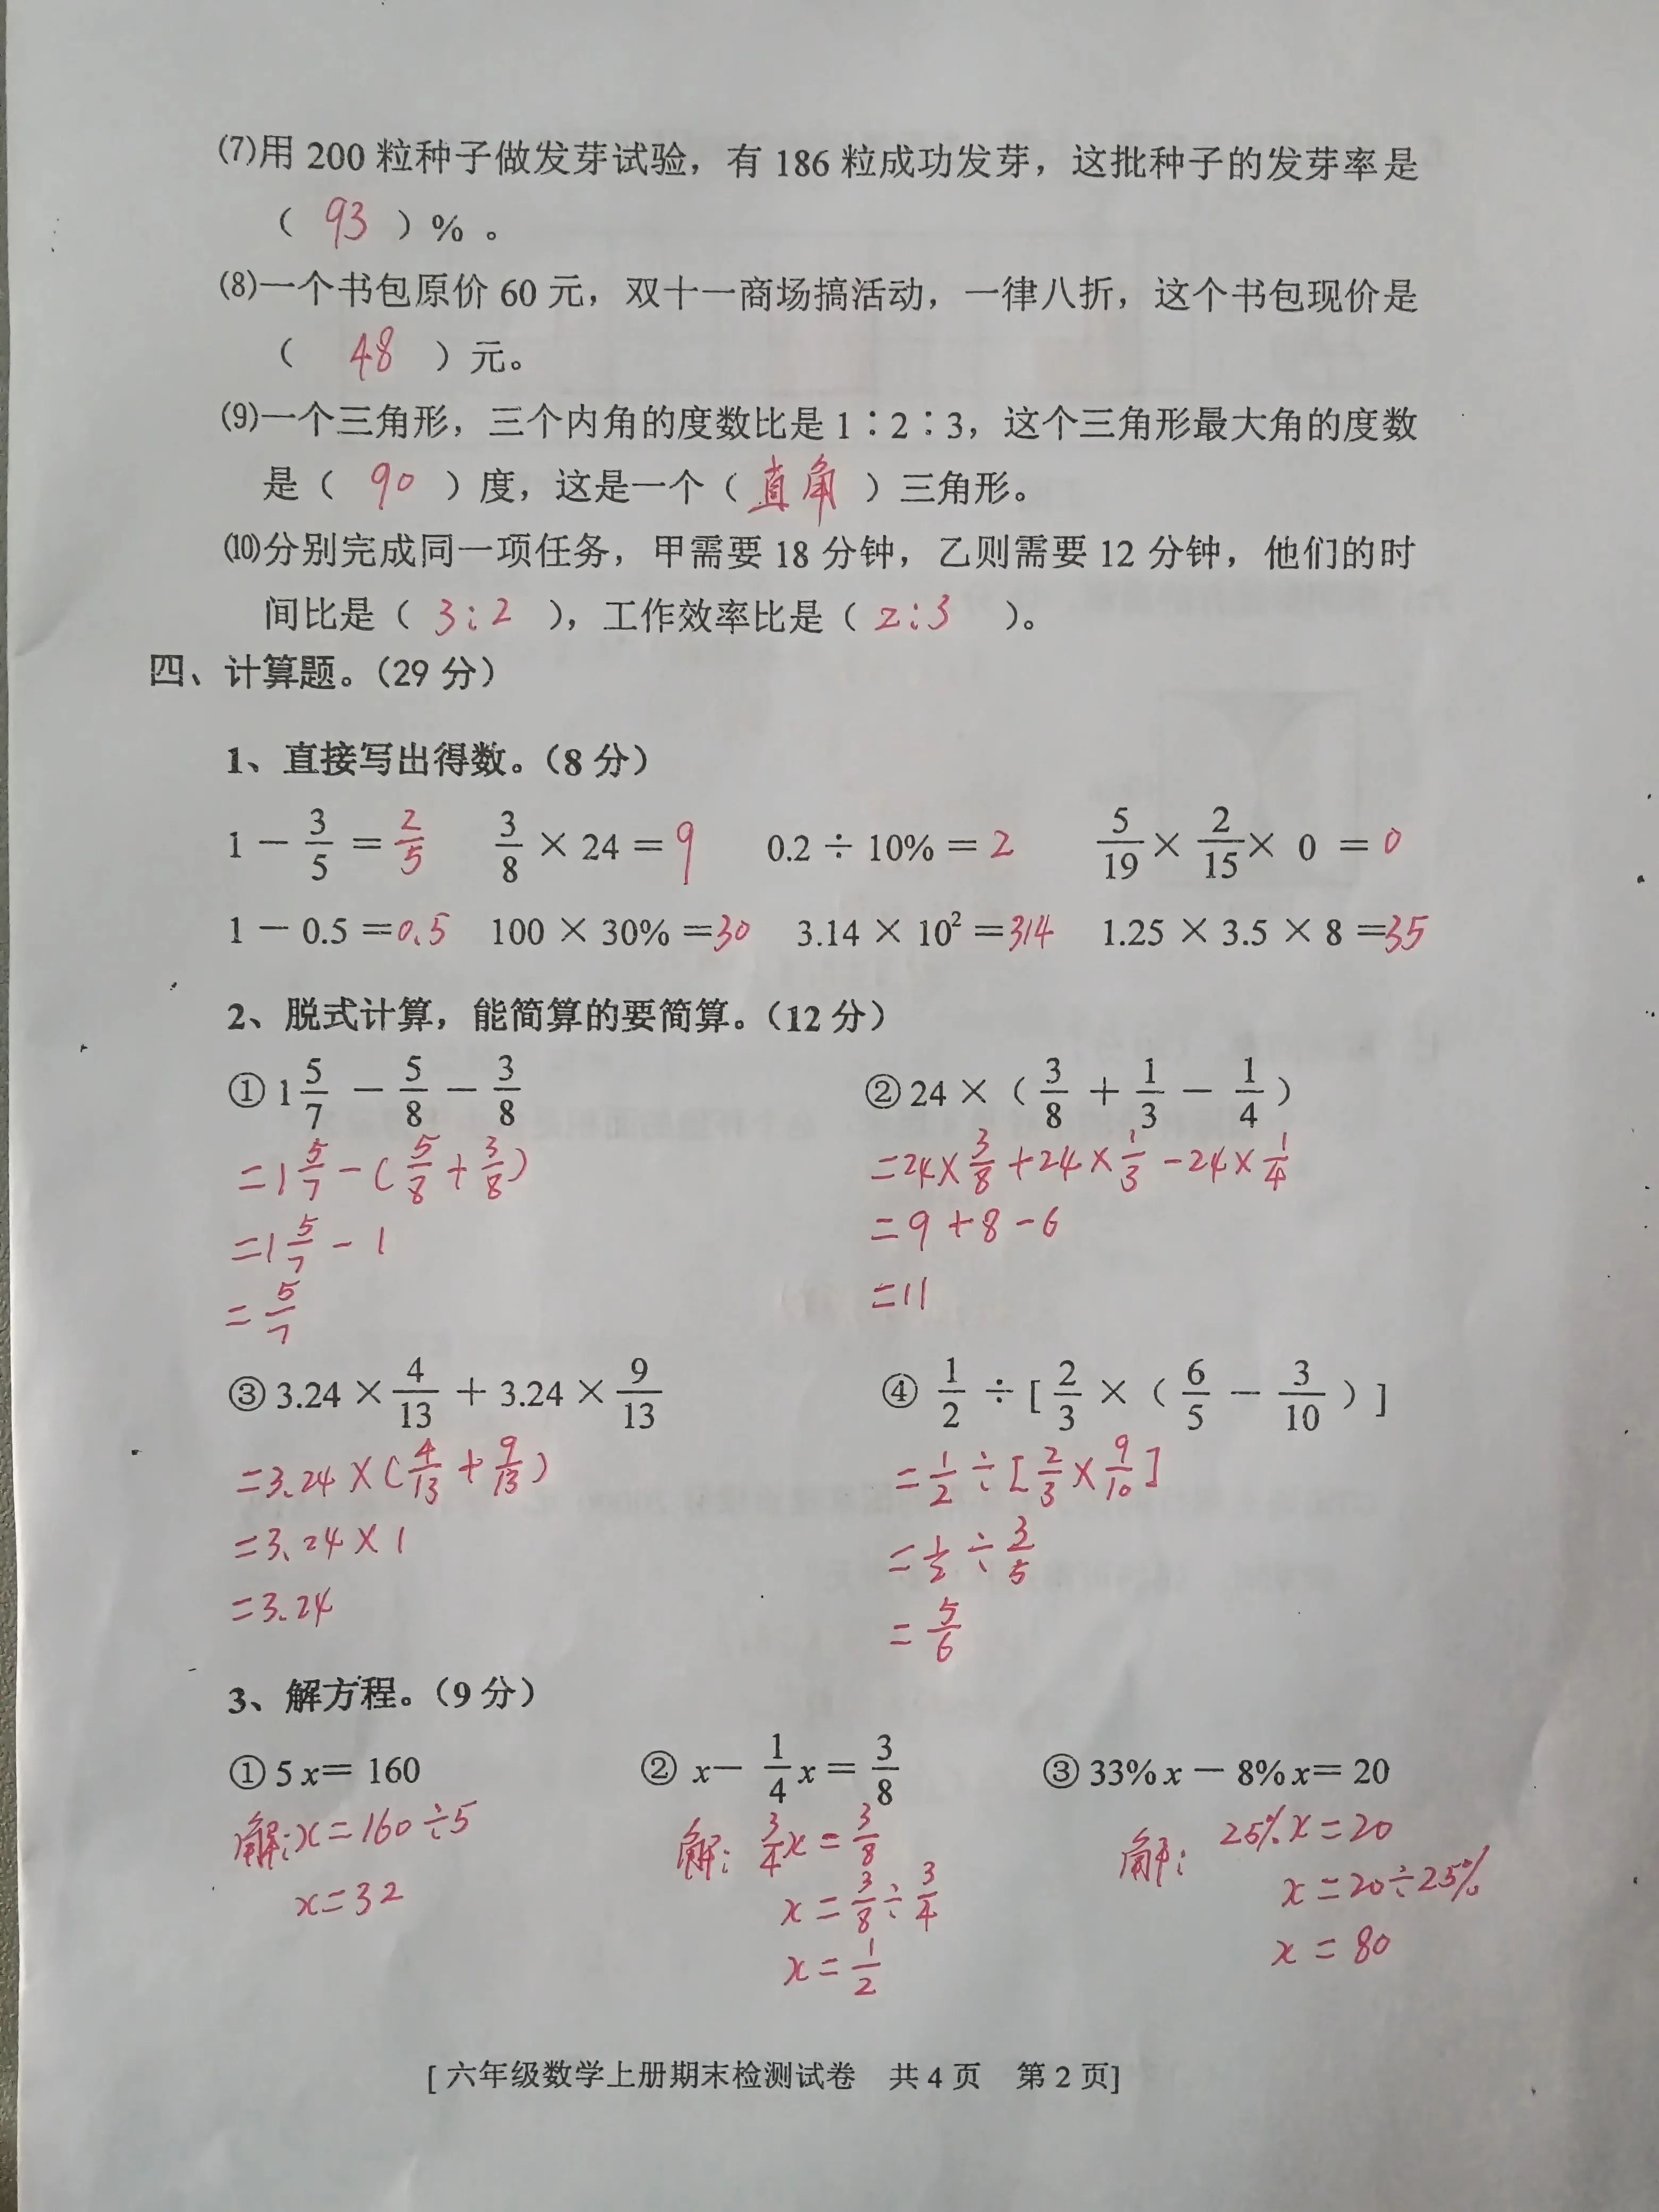 ⑺用 200 粒种子做发芽试验，有 186 粒成功发芽，这批种子的发芽率是
（ 93 ）% 。
⑻一个书包原价 60 元，双十一商场搞活动，一律八折，这个书包现价是
（ 48 ）元。
⑼一个三角形，三个内角的度数比是 1∶2∶3，这个三角形最大角的度数
是（ 90 ）度，这是一个（ 直角 ）三角形。
⑽分别完成同一项任务，甲需要 18 分钟，乙则需要 12 分钟，他们的时
间比是（ 3:2 ），工作效率比是（ 2:3 ）。
四、计算题。（29 分）
1、直接写出得数。（8 分）
1 － 3/5 ＝ 2/5 3/8 × 24 ＝ 9 0.2 ÷ 10% ＝ 2 5/19 × 2/15 × 0 ＝ 0
1 － 0.5 ＝0.5 100 × 30% ＝30 3.14 × 10² ＝314 1.25 × 3.5 × 8 ＝35
2、脱式计算，能简算的要简算。（12 分）
① 1 5/7 － 5/8 － 3/8 ② 24 ×（ 3/8 ＋ 1/3 － 1/4 ）
=1 5/7 -( 5/8 + 3/8 ) =24× 3/8 +24× 1/3 -24× 1/4
=1 5/7 - 1 =9+8-6
= 5/7 =11
③ 3.24 × 4/13 ＋ 3.24 × 9/13 ④ 1/2 ÷ [ 2/3 ×（ 6/5 － 3/10 ）]
=3.24×( 4/13 + 9/13 ) = 1/2 ÷[ 2/3 × 9/10 ]
=3.24×1 = 1/2 ÷ 3/5
=3.24 = 5/6
3、解方程。（9 分）
① 5 x＝ 160 ② x－ 1/4 x＝ 3/8 ③ 33% x － 8% x＝ 20
解:x=160÷5 解: 3/4 x= 3/8 解: 25%x=20
x=32 x= 3/8 ÷ 3/4 x=20÷25%
x= 1/2 x=80
[ 六年级数学上册期末检测试卷 共 4 页 第 2 页]